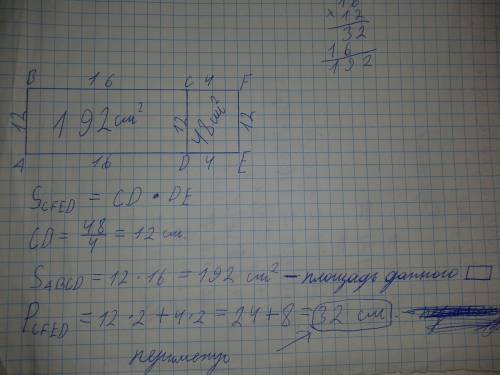 16
× 12
32
16
192
B 16 C 4 F
12 192 cm² 12 48 cm² 12
A 16 D 4 E
S_CFED = CD · DE
CD = 48/4 = 12 cm
S_ABCD = 12 · 16 = 192 cm² – площадь данного
P_CFED = 12 · 2 + 4 · 2 = 24 + 8 = 32 cm.
периметр